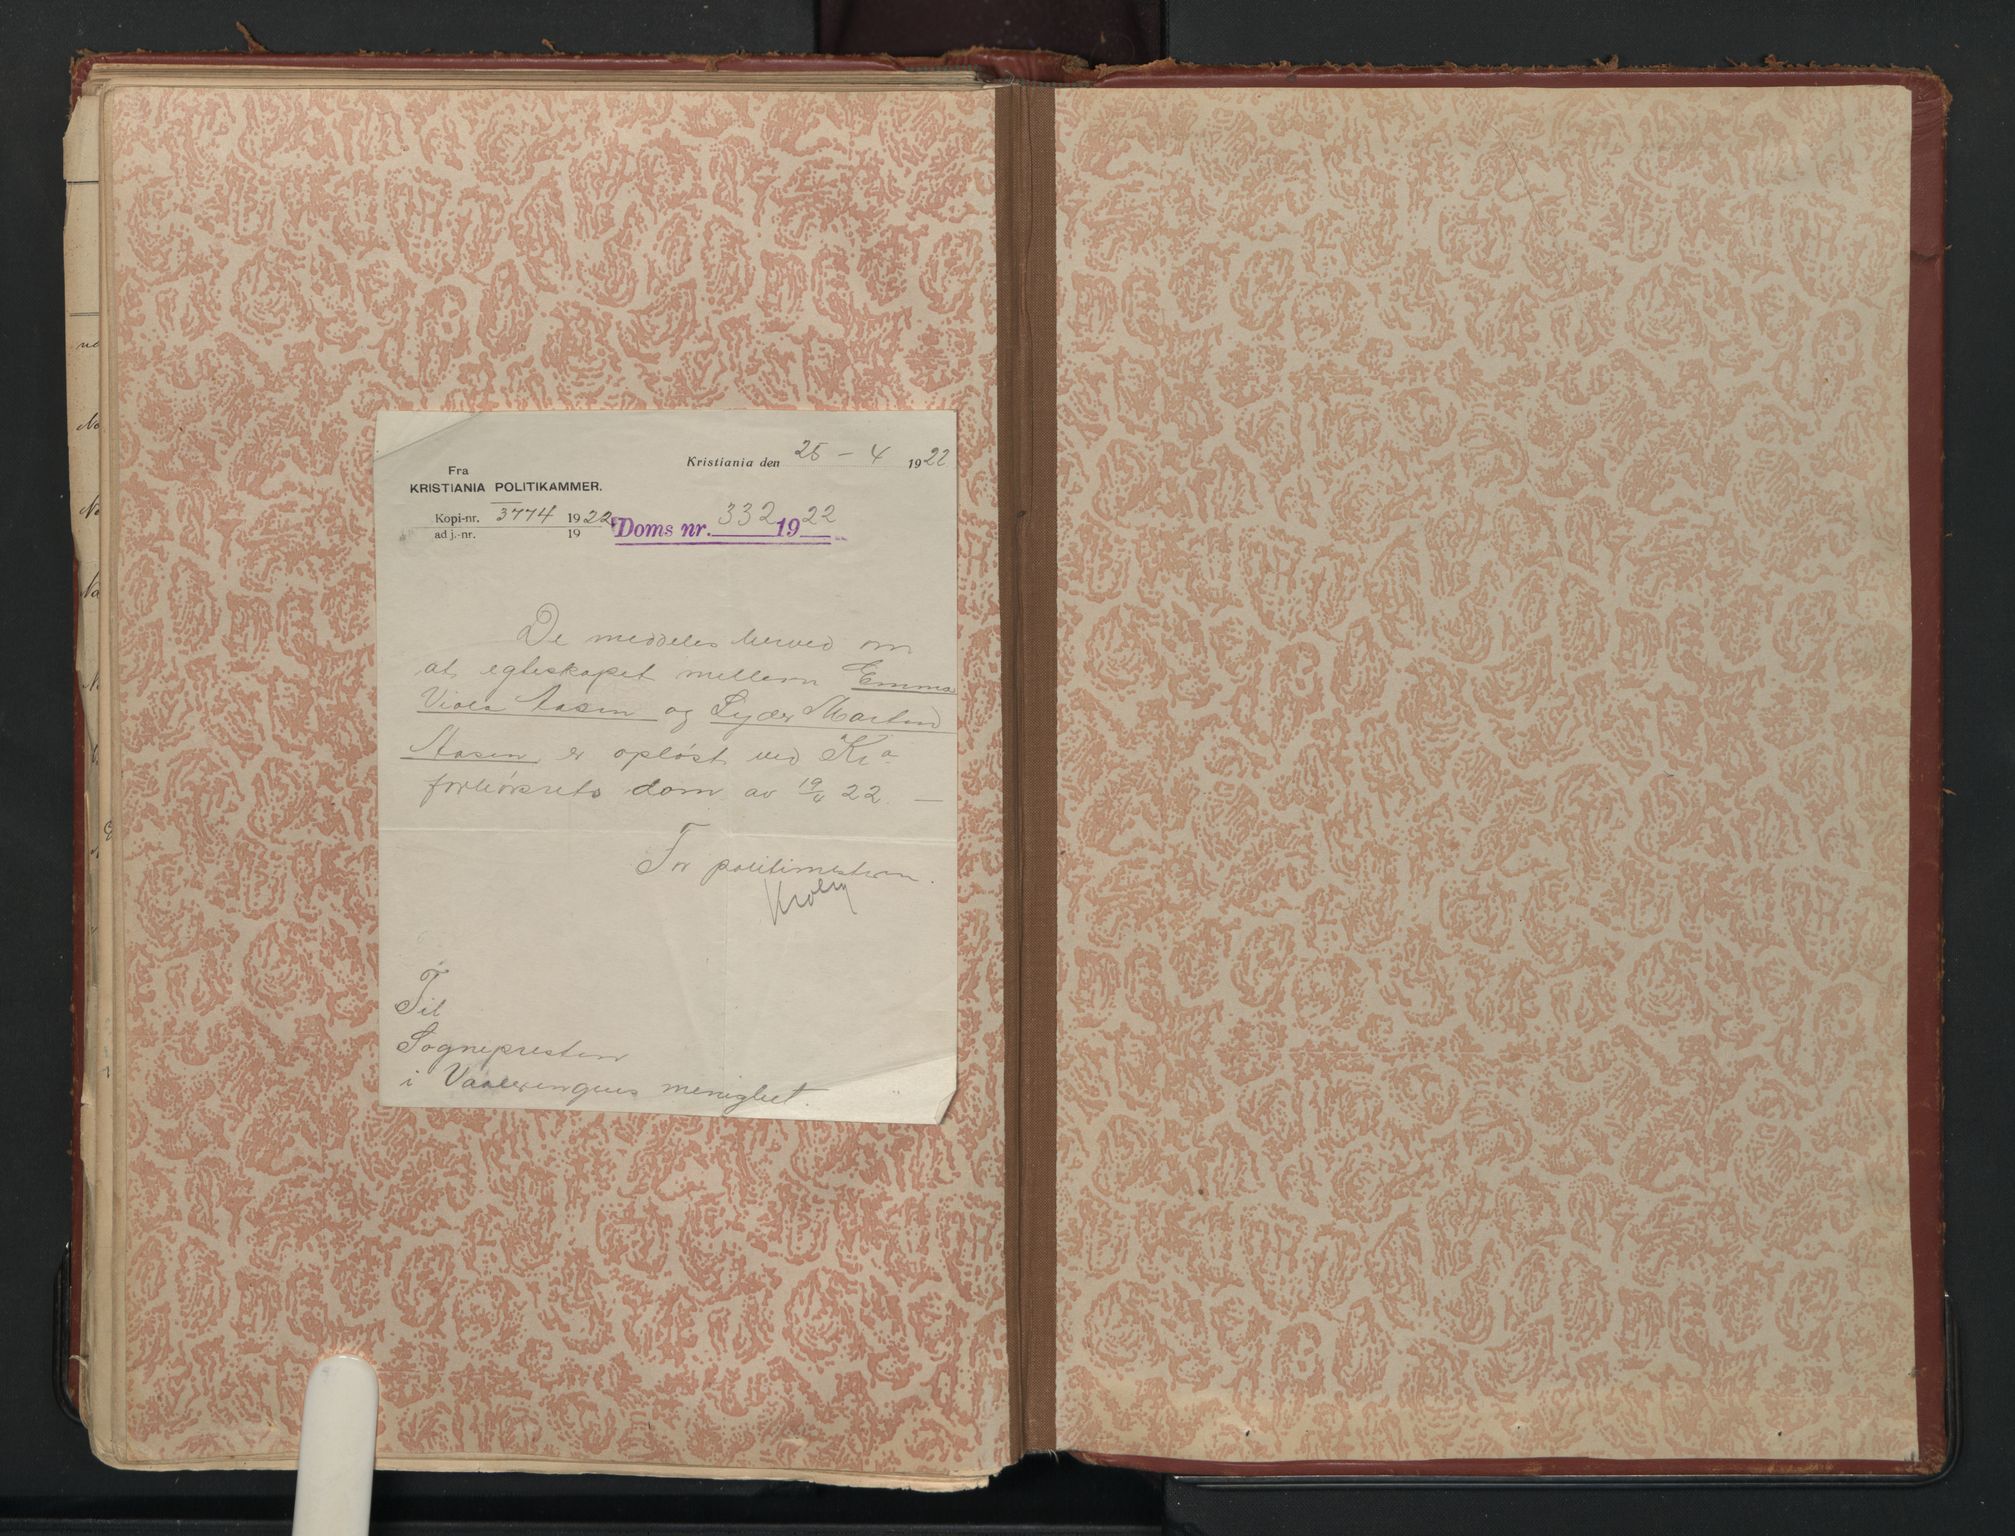 Kristiania den 25 – 4 1922
Fra
KRISTIANIA POLITIKAMMER.
Kopi-nr. 3774 1922
ad j.-nr. 19
Doms nr. 332 1922
De meddeles herved om
at egteskapet mellem Emma
Viola Aasen og Lyder Martind
Aasen er opløst ved Kra
forhørsrets dom av 19/4 22. —
For politimesteren.
Til
Sognepresten
i Vaalerengens menighet.